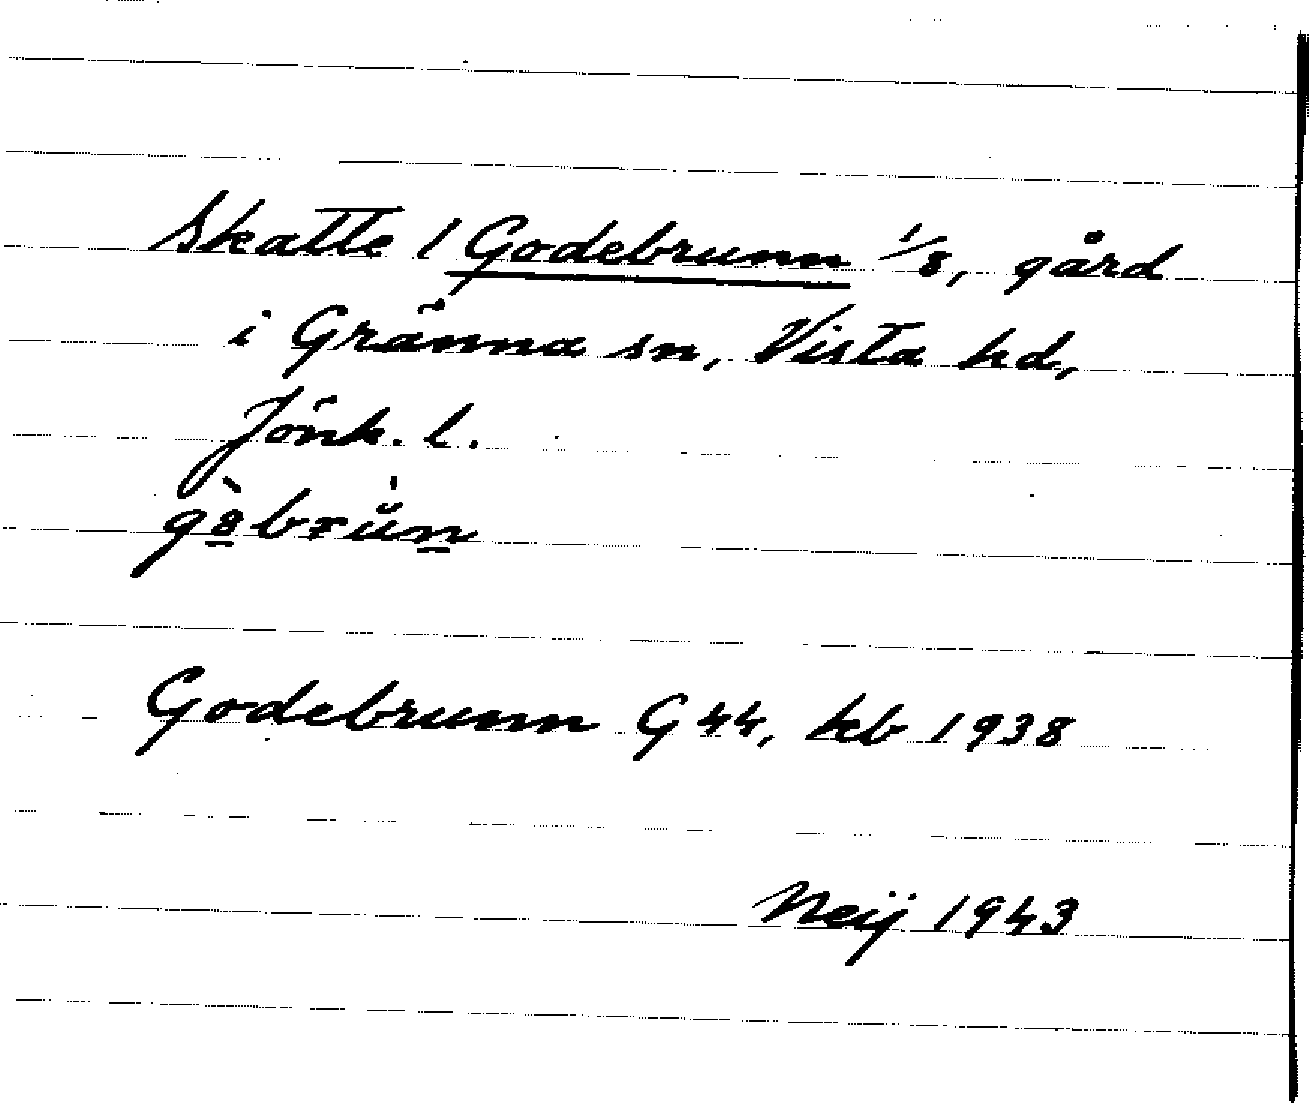 Skatte 1 Godebrunn 1/8, gård
i Gränna sn, Vista hd,
Jönk. l.
Godebrunn G 44, kb 1938
Neij 1943